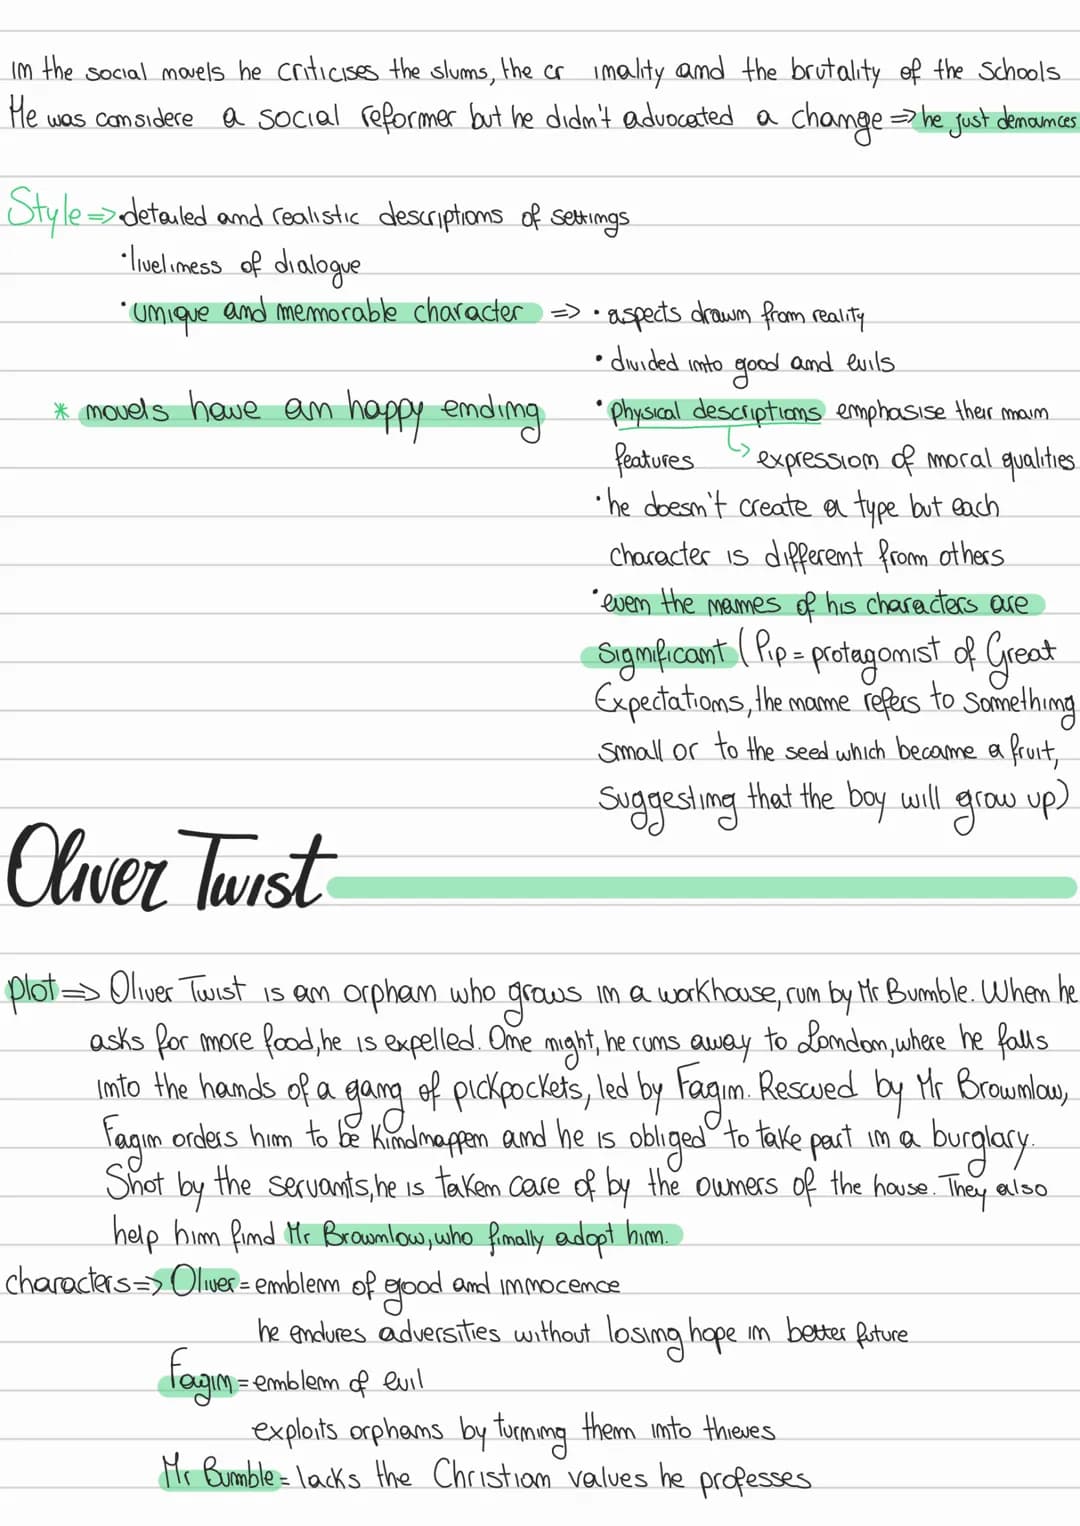 In the social novels he criticises the slums, the cr imality and the brutality of the Schools
He was considere a social reformer but he didn't advocated a change => he just denounces
Style => • detailed and realistic descriptions of settings
• liveliness of dialogue
• unique and memorable character => • aspects drawn from reality
• divided into good and evils
* novels have an happy ending
• physical descriptions emphasise their main
features ↳ expression of moral qualities
• he doesn't create a type but each
character is different from others
• even the names of his characters are
significant (Pip = protagonist of Great
Expectations, the name refers to something
small or to the seed which became a fruit,
suggesting that the boy will grow up)
Oliver Twist
plot => Oliver Twist is an orphan who grows in a workhouse, run by Mr Bumble. When he
asks for more food, he is expelled. One night, he runs away to London, where he falls
into the hands of a gang of pickpockets, led by Fagin. Rescued by Mr Brownlow,
Fagin orders him to be Kindnappen and he is obliged to take part in a burglary.
Shot by the servants, he is taken care of by the owners of the house. They also
help him find Mr Brownlow, who finally adopt him.
characters => Oliver = emblem of good and innocence
he endures adversities without losing hope in better future
Fagin = emblem of evil
exploits orphans by turning them into thieves
Mr Bumble = lacks the Christian values he professes